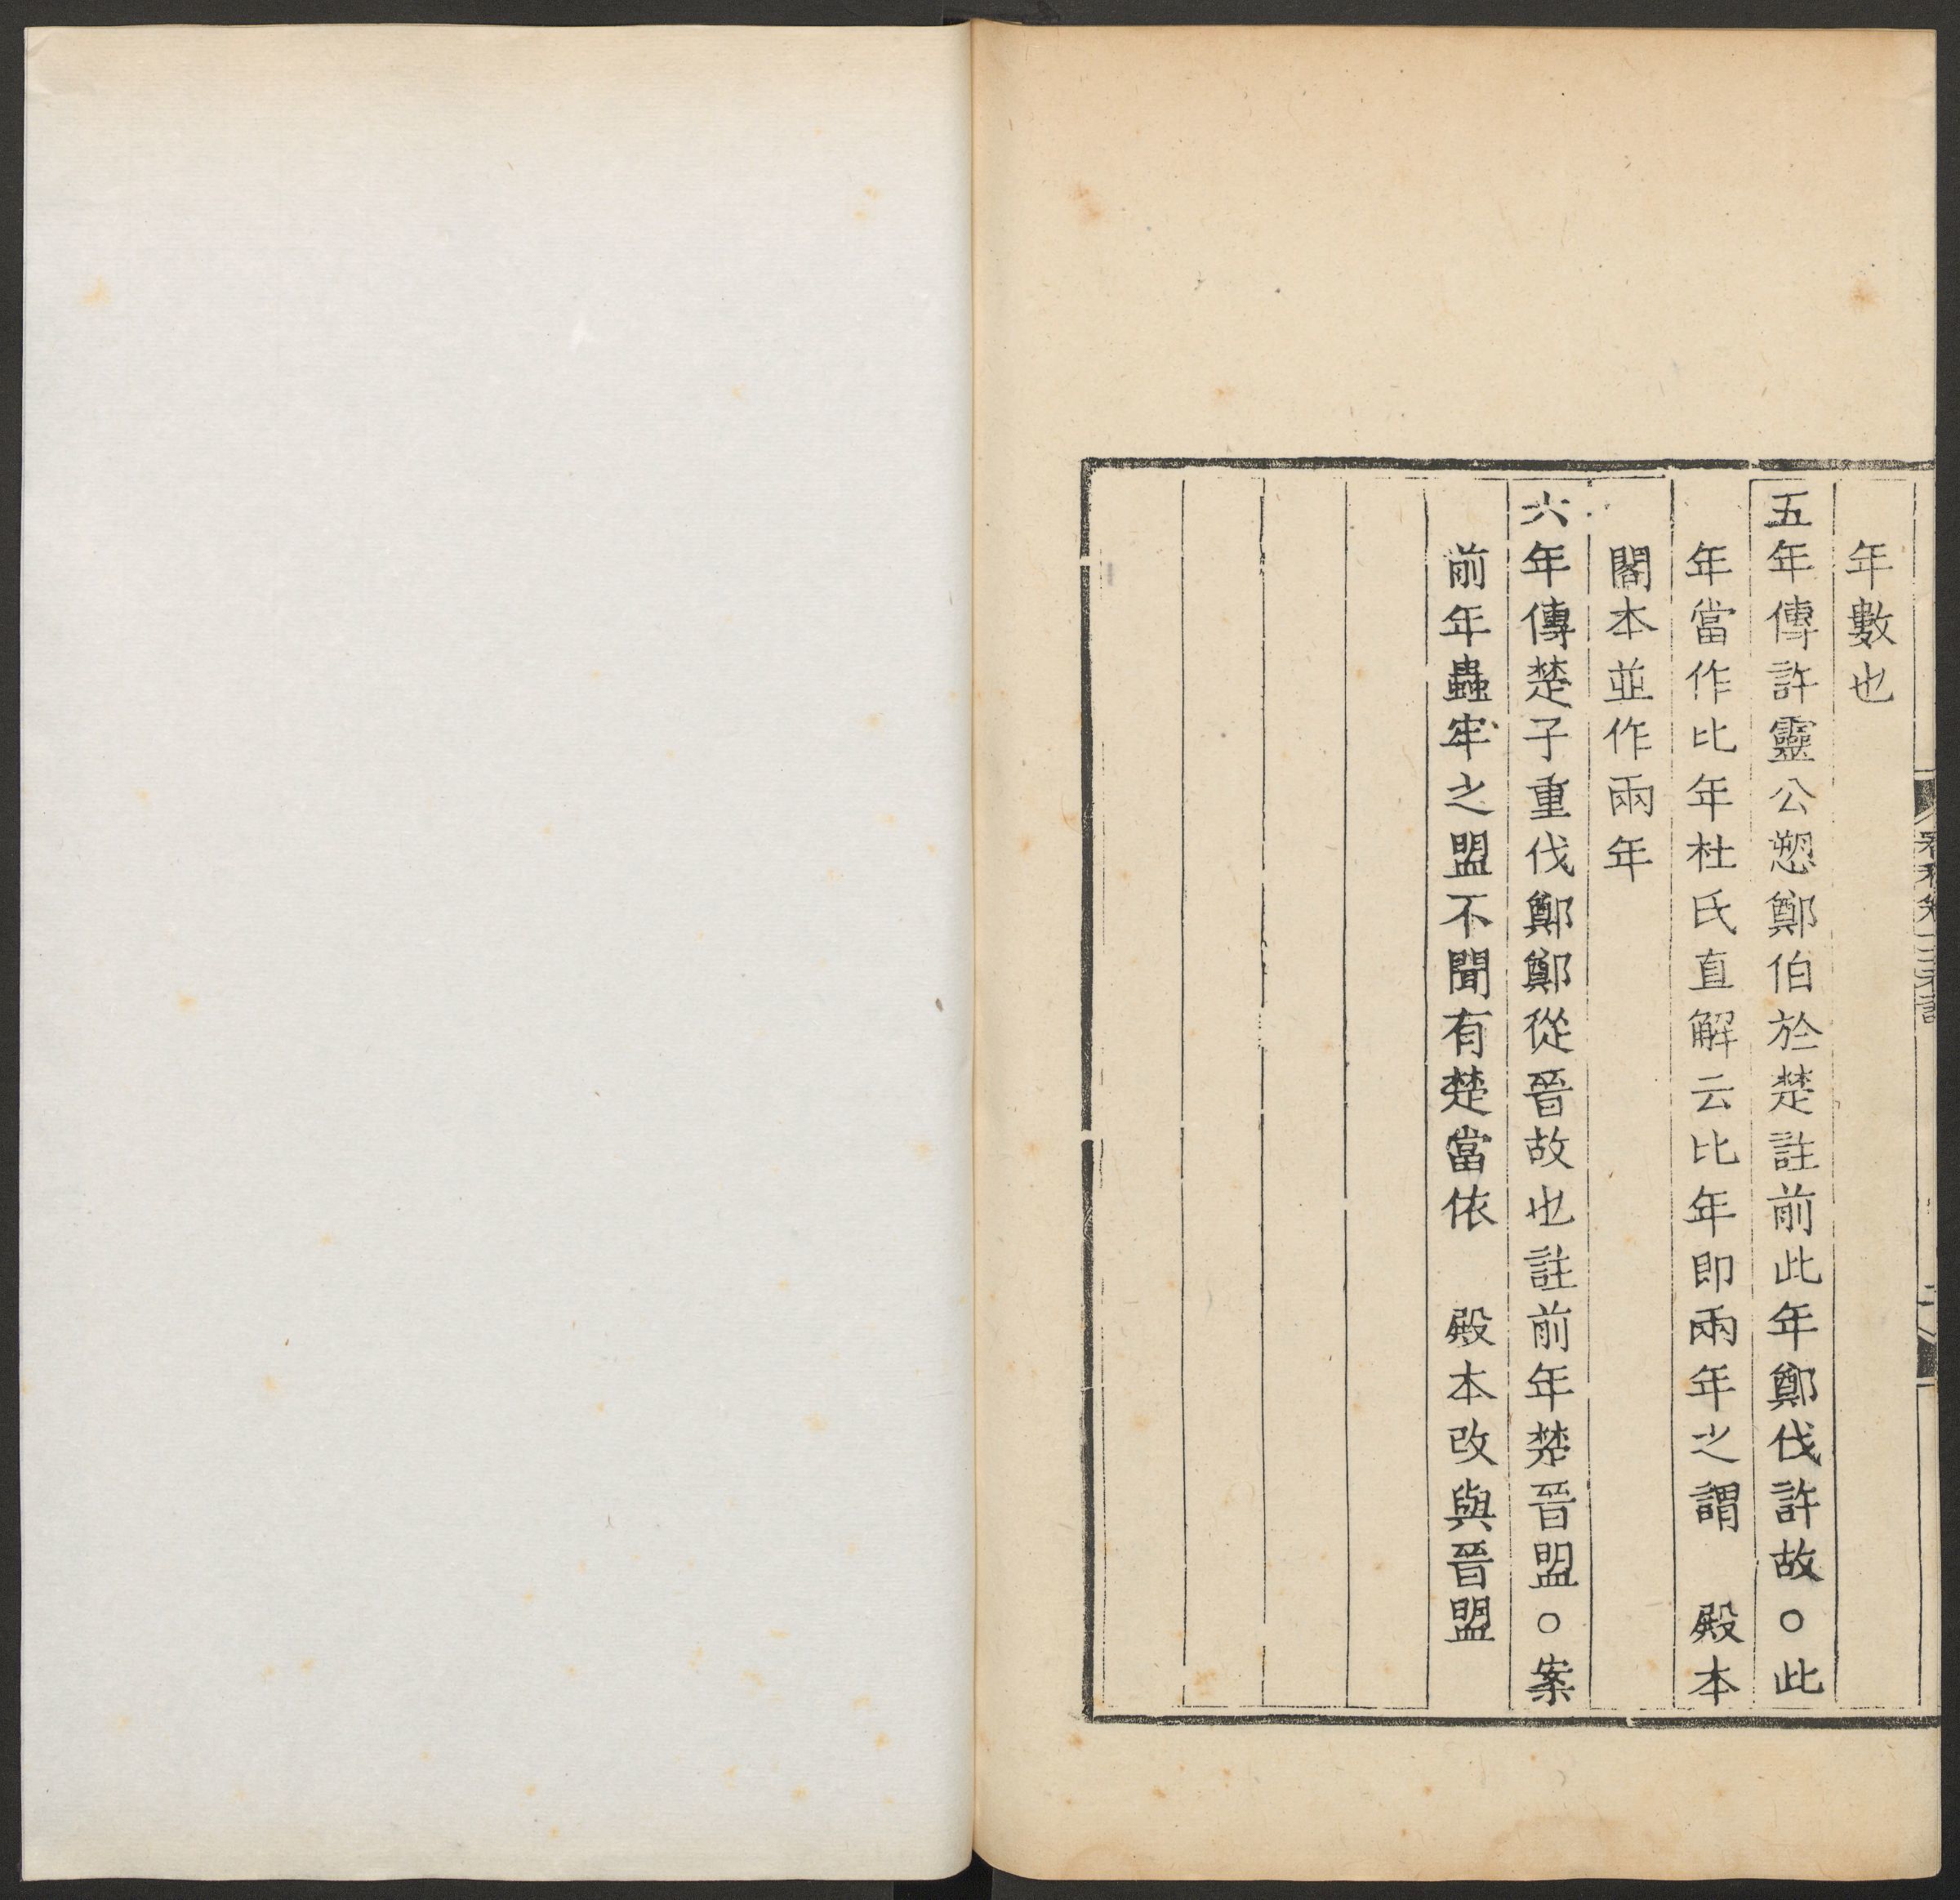 年數也
五年傳許靈公愬鄭伯於楚註前此年鄭伐許故○此
年當作比年杜氏直解云比年即兩年之謂　殿本
閣本並作兩年
六年傳楚子重伐鄭鄭從晉故也註前年楚晉盟○案
前年蟲牢之盟不聞有楚當依　殿本改與晉盟